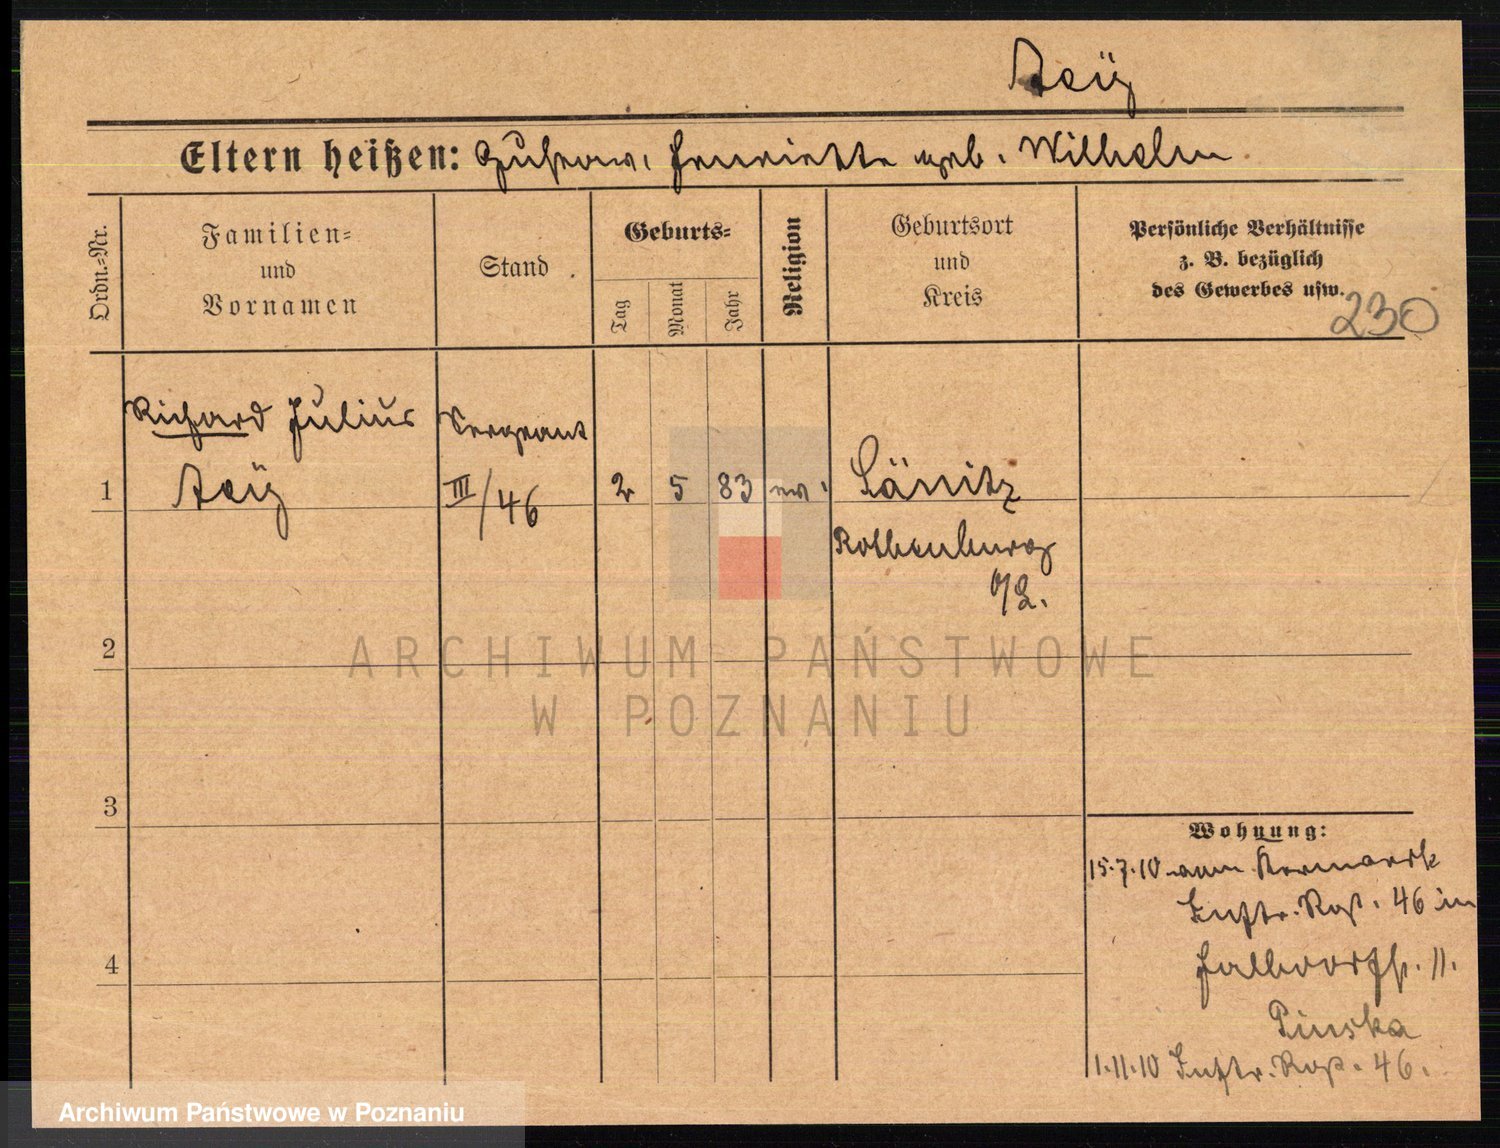 Eltern heißen: Henriette geb. Wilhelm
Ordn.-Nr.
Familien-
und
Vornamen
Stand
Geburts-
Tag
Monat
Jahr
Religion
Geburtsort
und
Kreis
Persönliche Verhältnisse
z. B. bezüglich
des Gewerbes usw.
230
Richard Julius
Sergeant
1
III/46
2
5
83
ev.
Sänitz
Rothenburg
O/L.
2
3
4
Wohnung:
15.7.10
Inftr. Rgt. 46 in
11.
Pinska
1.11.10 Inftr. Rgt. 46.
ARCHIWUM PAŃSTWOWE
W POZNANIU
Archiwum Państwowe w Poznaniu